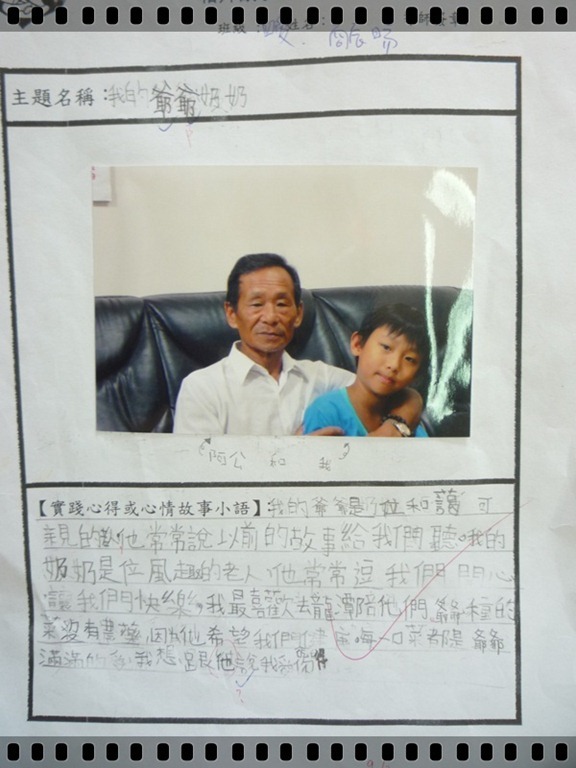 班級：姓名：
主題名稱：我的爺爺奶奶
阿公 和 我
【實踐心得或心情故事小語】：我的爺爺是位和藹可
親的人他常常說以前的故事給我們聽。我的
奶奶是位風趣的老人，他常常逗我們開心
讓我們快樂，我最喜歡去龍潭陪他們爺爺種的
菜沒有農藥因為他希望我們健康每一口菜都是爺爺
滿滿的愛我想跟他說我愛你